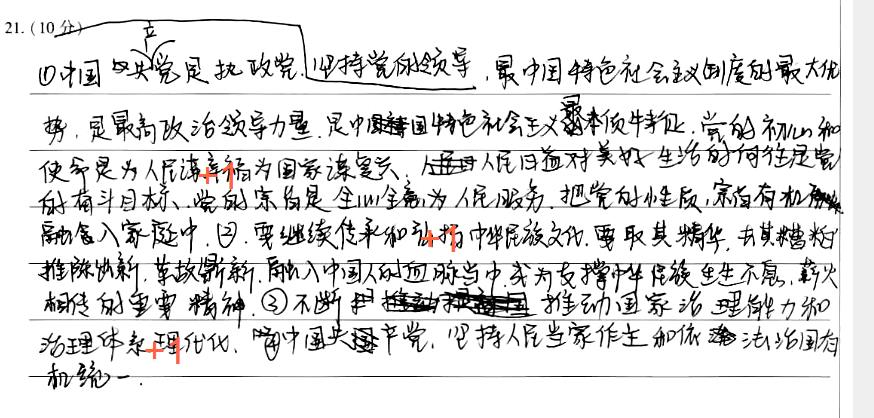 21.(10分)
①中国共产党是执政党,坚持党的领导,最中国特色社会主义制度的最大优
势,是最高政治领导力量,是中国特色社会主义最本质特征,党的初心和
使命是为人民谋幸福为国家谋复兴,人民日益对美好生活的向往是党
+1
的奋斗目标、党的宗旨是全心全意为人民服务,把党的性质,宗旨有机
融合入家庭中,②.要继续传承和弘扬中华民族文化,要取其精华,去其糟粕
+1
推陈出新,革故鼎新,融入中国人的血脉当中,成为支撑中华民族生生不息,薪火
相传的重要精神.③不断推动国家治理能力和
治理体系理代化,中国共产党,坚持人民当家作主和依法治国有
+1
机统一.